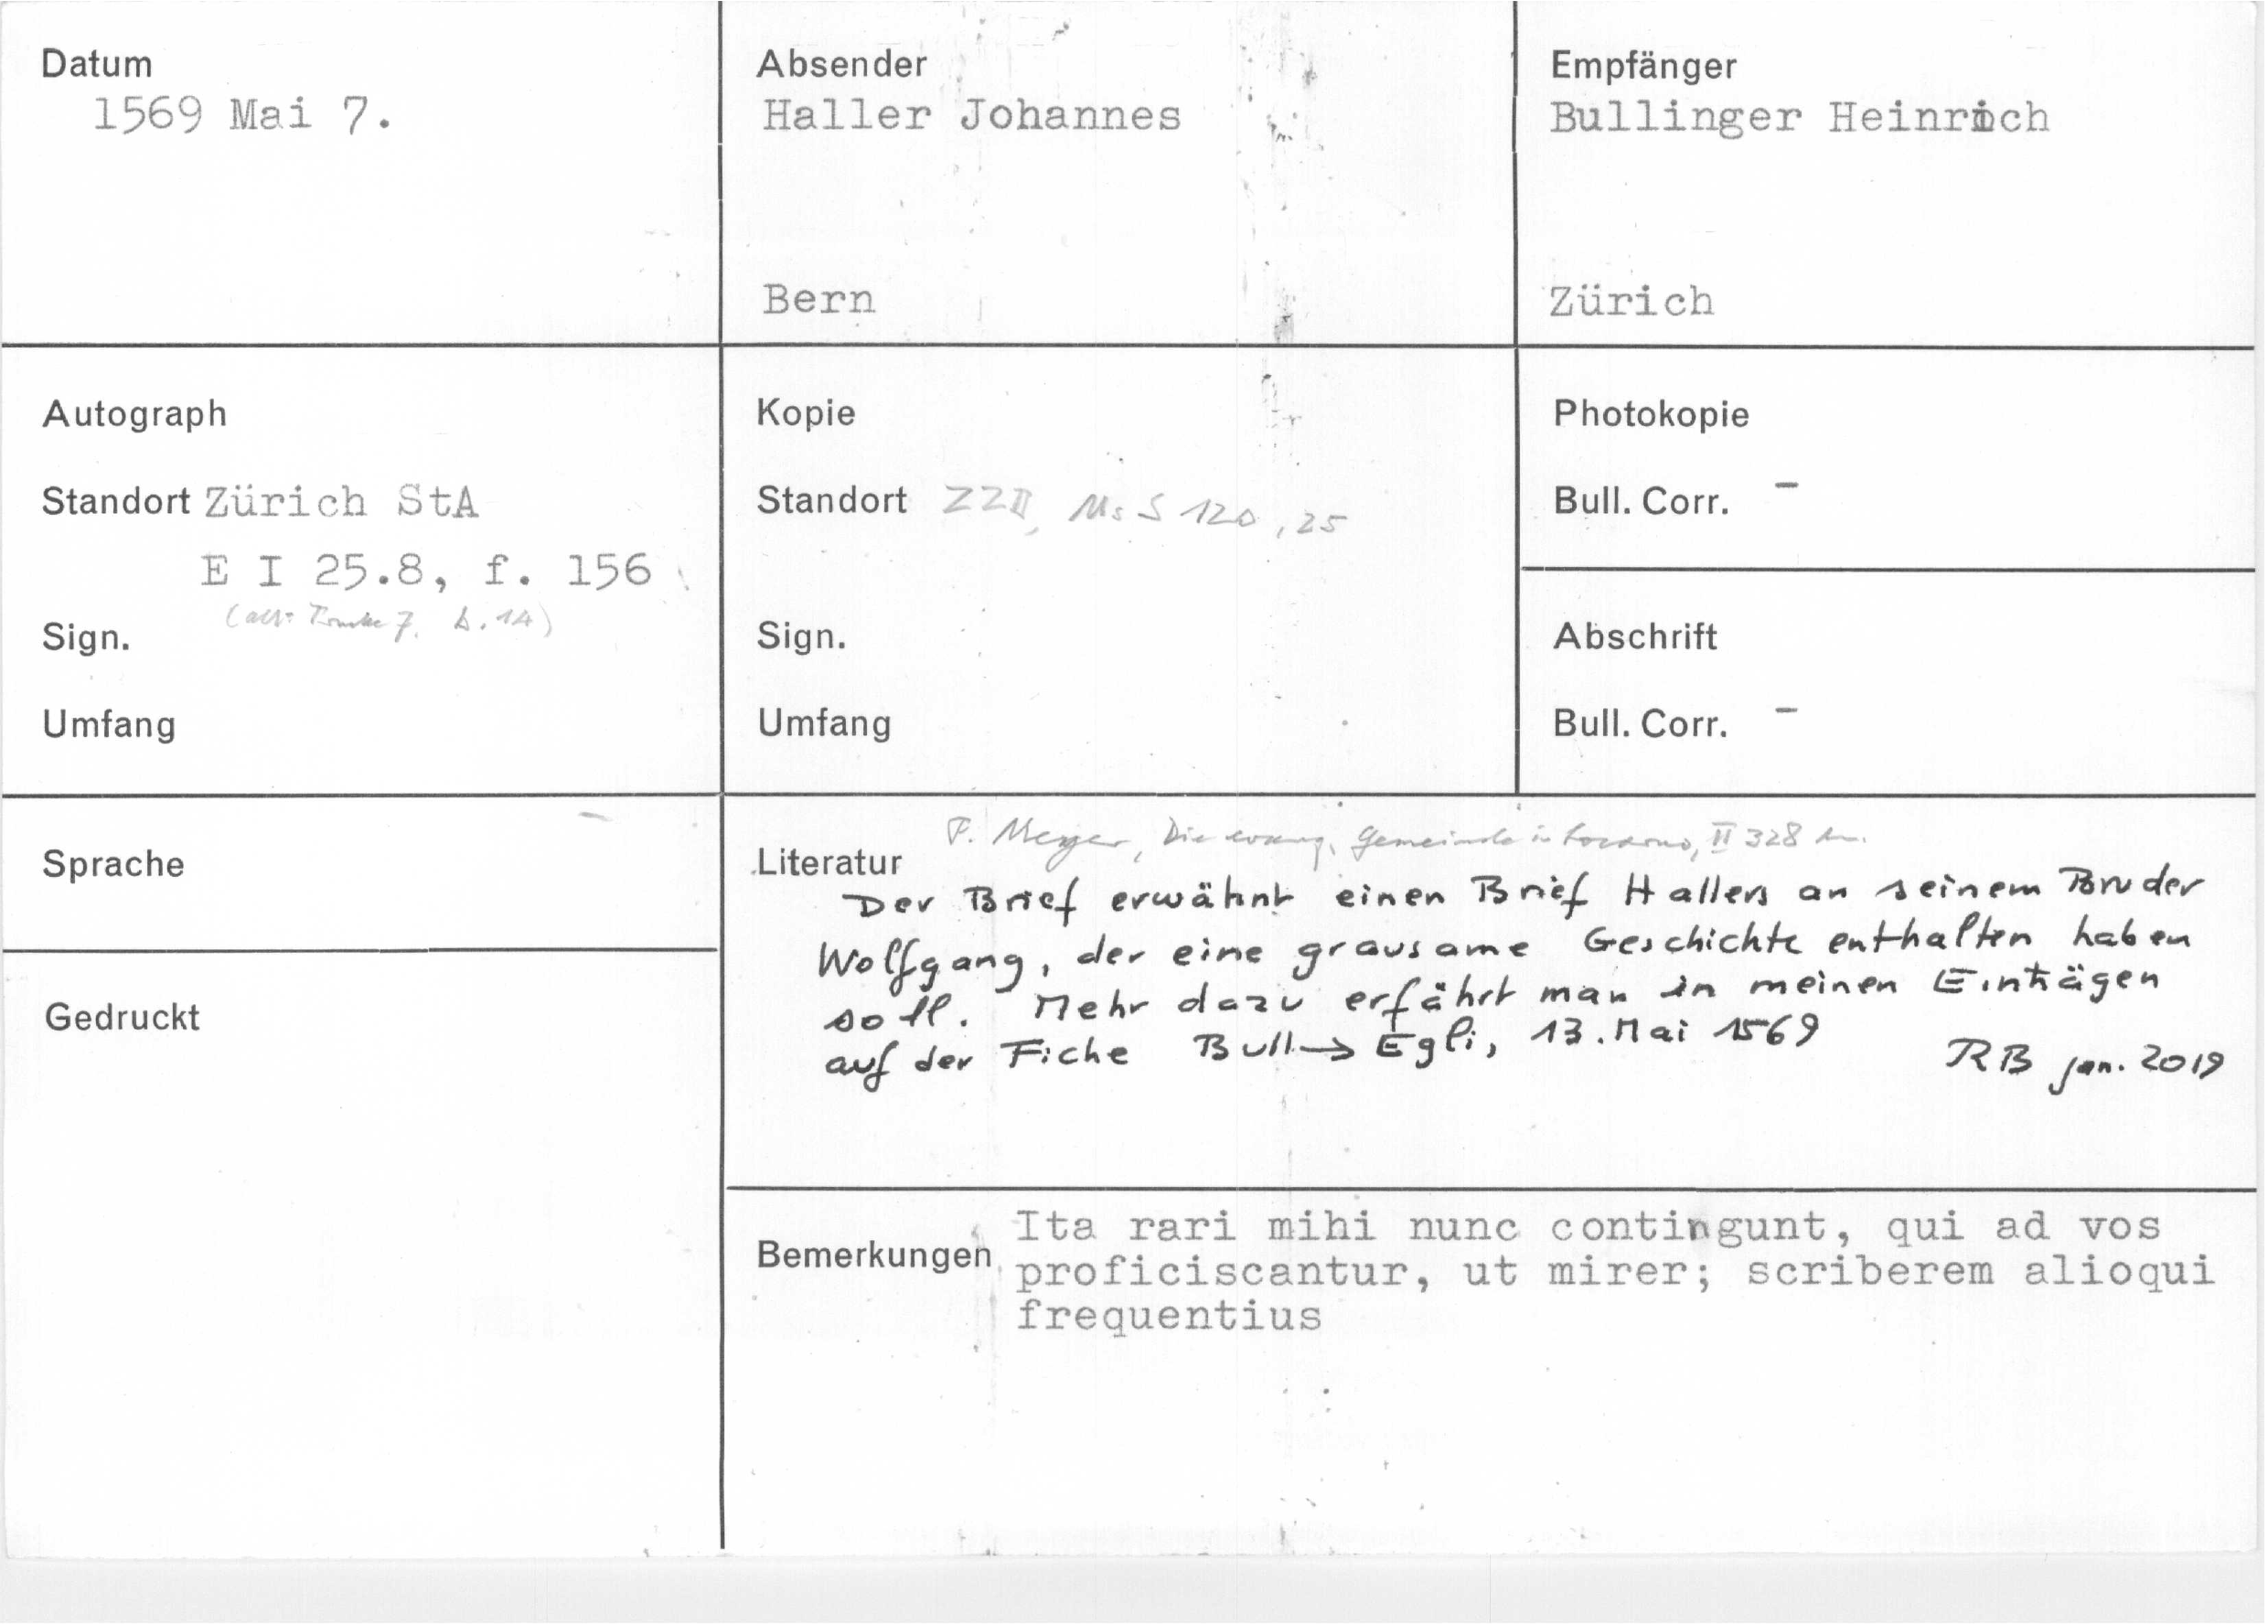 Datum
1569 Mai 7.
Absender
Haller Johannes
Bern
Empfänger
Bullinger Heinrich
Zürich
Autograph
Standort Zürich StA
E I 25.8, f. 156
7. 14)
Sign.
Umfang
Kopie
Standort ZZB, Ms S 120, 25
Sign.
Umfang
Photokopie
Bull. Corr. –
Abschrift
Bull. Corr. –
Sprache
Gedruckt
F. Meyer, Die evang. Gemeinde in Locarno, II 328
Literatur
Der Brief erwähnt einen Brief Hallers an seinem Bruder
Wolfgang, der eine grausame Geschichte enthalten haben
soll. Mehr dazu erfährt man in meinen Einträgen
auf der Fiche Bull → Egli, 13. Mai 1569
RB Jan. 2019
Bemerkungen
Ita rari mihi nunc contingunt, qui ad vos
proficiscantur, ut mirer; scriberem alioqui
frequentius